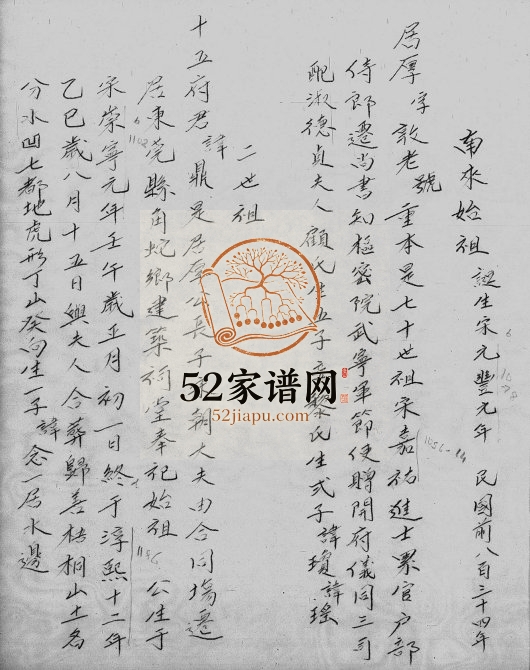 南來始祖 誕生宋元豐元年 民國前八百三十四年
居厚 字敦老 號重本 是七十世祖 宋嘉祐進士 累官户部
侍郎 遷尚書 知樞密院 武寧軍節使 贈開府儀同三司
配淑德貞夫人 顧氏生五子 黎氏生弍子 諱瓊 諱瑤
二世祖
十五府君 諱鼎 是居厚公長子 朝大夫 由合同場遷
居東莞縣 鄉建築祠堂 奉祀始祖 公生于
宋崇寧元年壬午歲正月初一日 終于淳熙十二年
乙巳歲八月十五日 與夫人合葬歸善梧桐山土名
分水凹七都地虎形丁山癸向 生一子 諱念一 居水邊
1078
1056-64
1102
1186
52家谱网
52jiapu.com